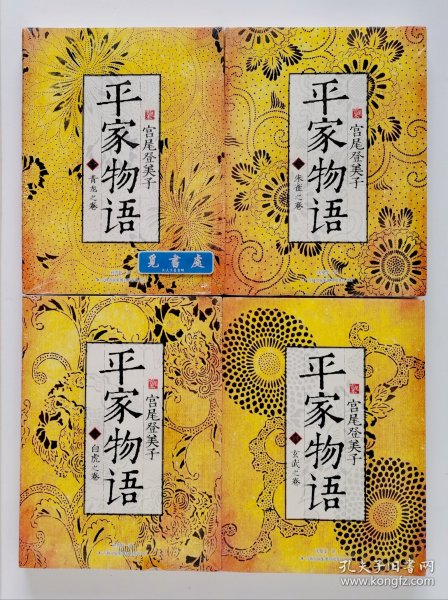 平家物语
宫尾登美子
青龙之卷
觅書處
平家物语
宫尾登美子
朱雀之卷
平家物语
宫尾登美子
白虎之卷
平家物语
宫尾登美子
玄武之卷
孔夫子旧书网
www.kongfz.com